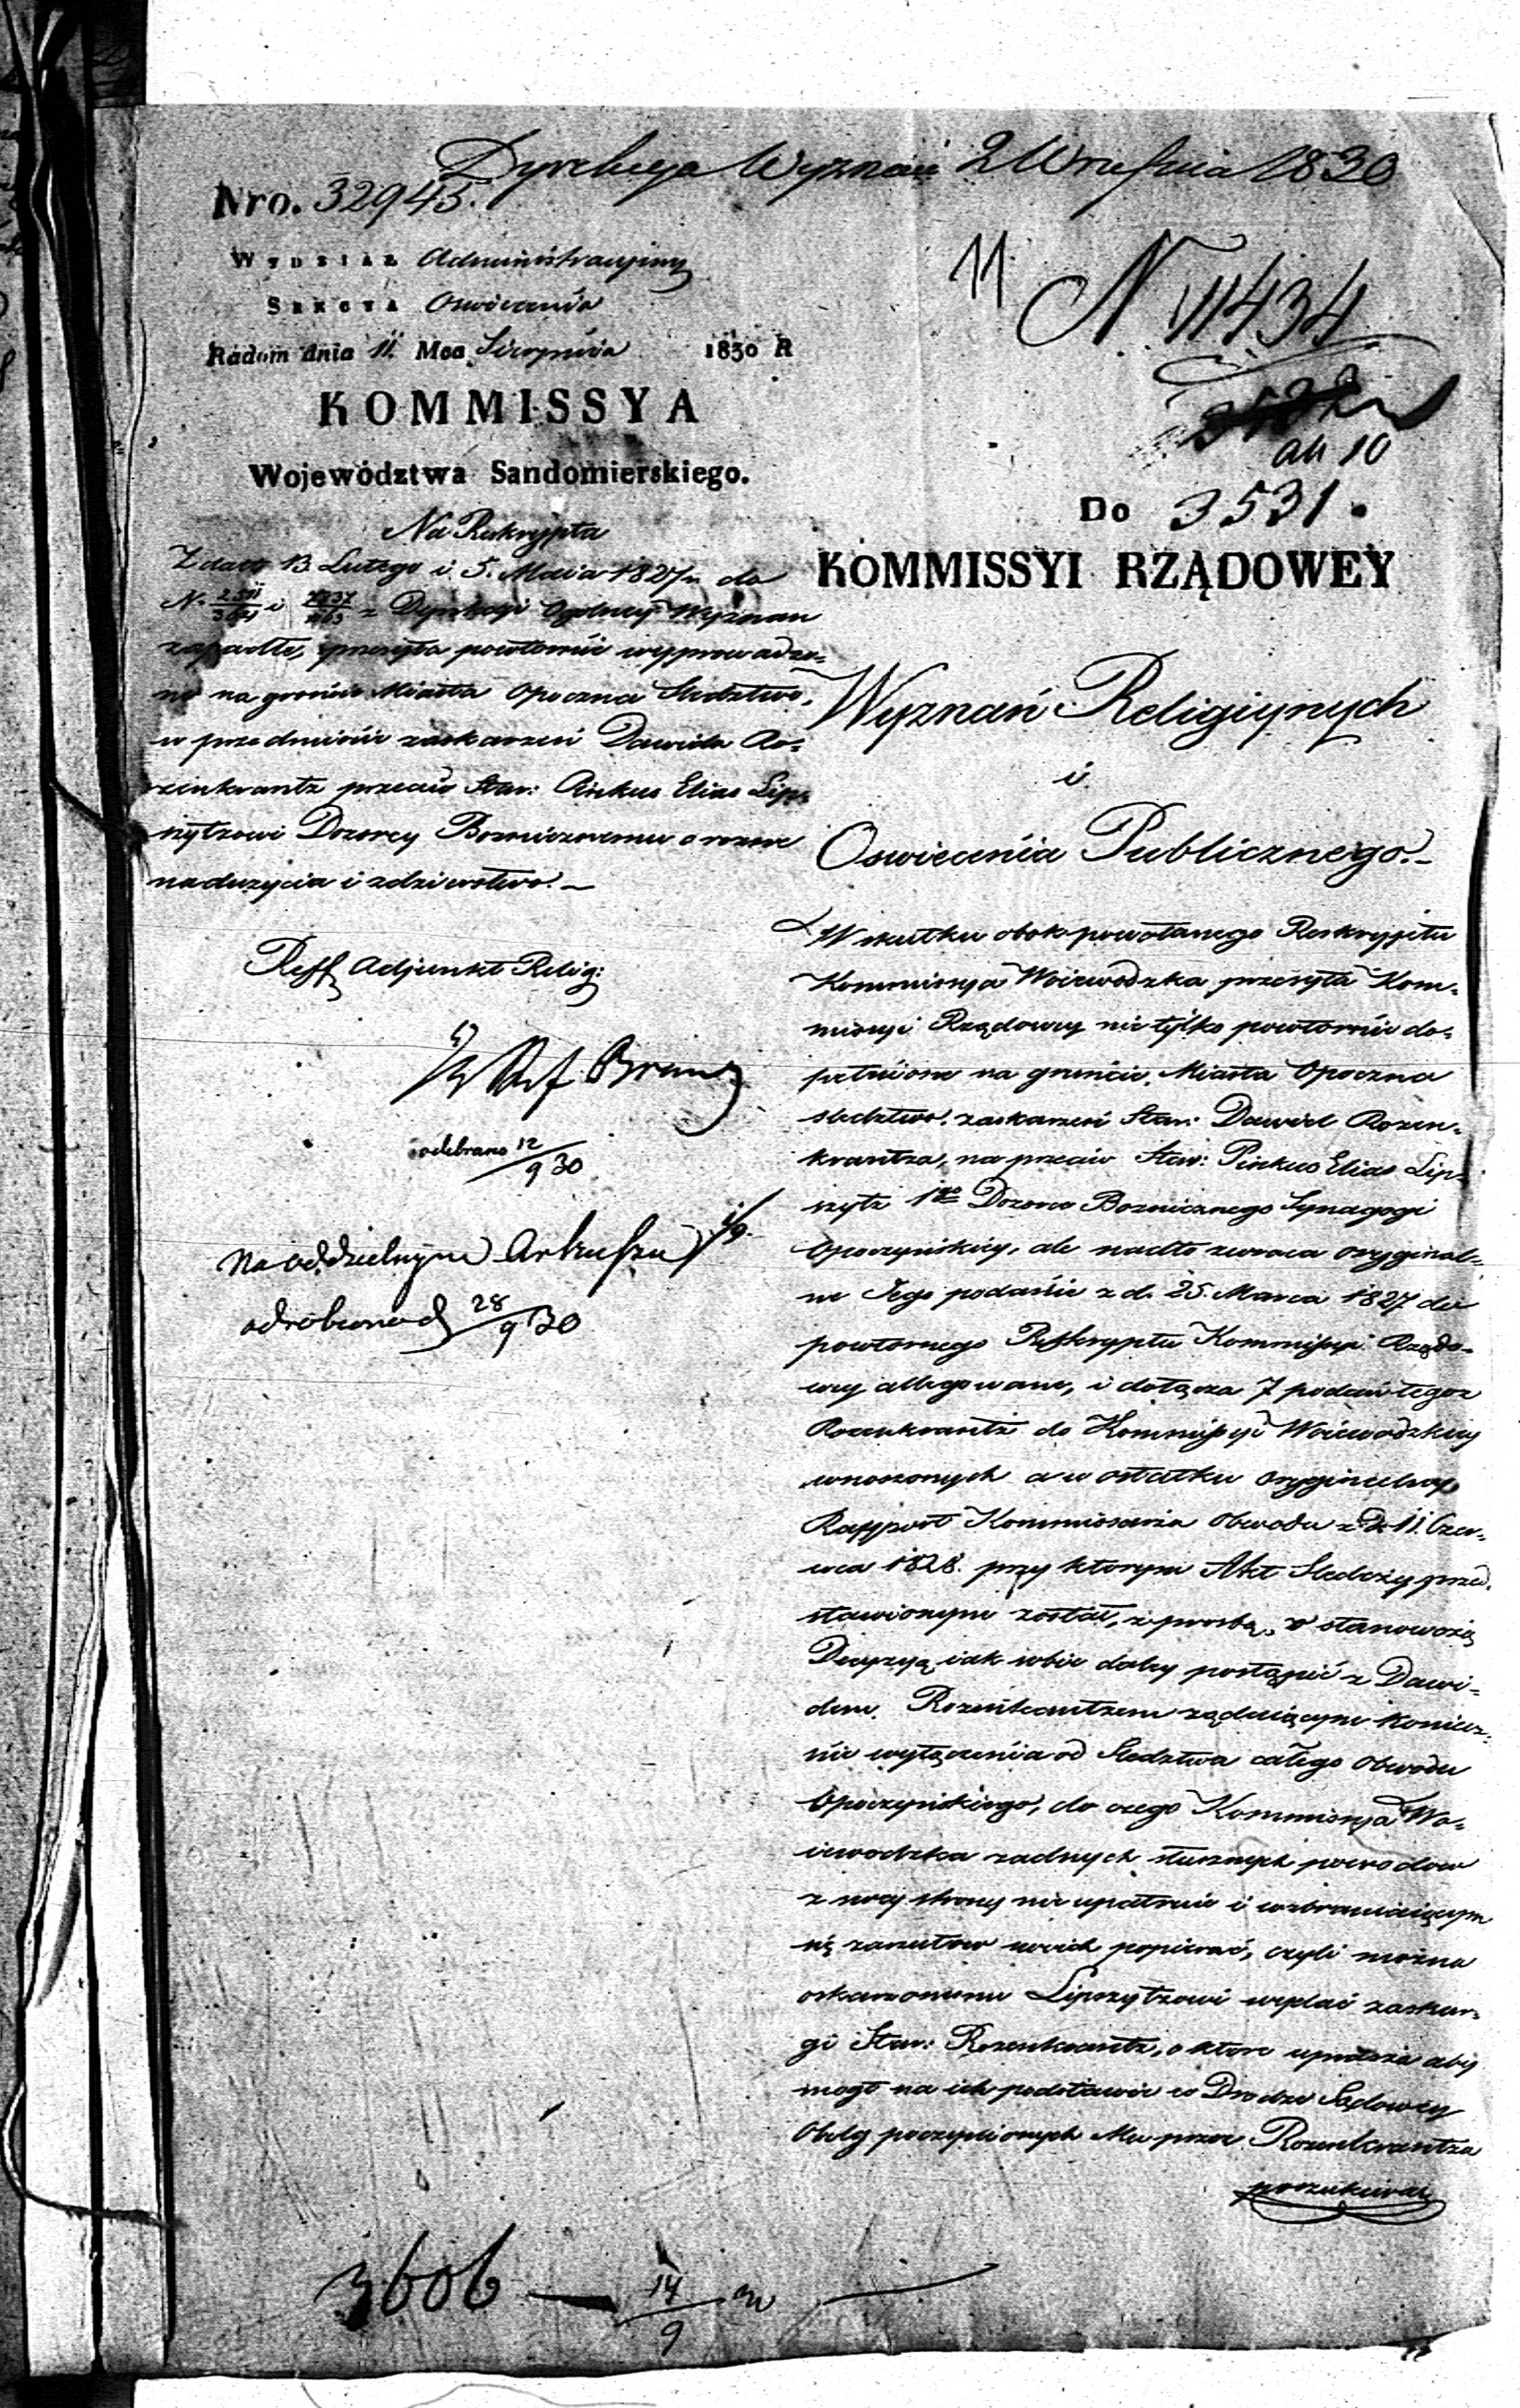 Dyrekcya Wyznań 2 Września 1830
Nro. 32945.
WYDZIAŁ Administracyiny
SEKCYA Oswiecenia
Radom dnia 11. Mca Sierpnia 1830 R
KOMMISSYA
Województwa Sandomierskiego.
Na Reskrypta
Z daty 13. Lutego i 5. Maia 1827 r. do
N. i z Dyrekcyi Ogolney Wyznan
zapadłe, przesyła powtornie wyprowadzo=
ne na gruncie Miasta Opoczna Sledztwo,
w przedmiocie zaskarzeń Dawida Ro=
zenkrantz przeciw Star: Pinkus Elias Lip=
szytzowi Dozorcy Boznicznemu o rozne
naduzycia i zdzierstwo.—
Reff Adjunkt Relig:
odebrano 12/9 30
Na oddzielnym Arkuszu
odrobiono d 28/9 30
11
N 11434
ad 10
Do 3531.
KOMMISSYI RZĄDOWEY
Wyznań Religiynych
i
Oswiecenia Publicznego.—
W skutku obok powołanego Reskryptu
Kommissya Woiewodzka przesyła Kom=
missyi Rządowey nie tylko powtornie do=
pełnione na gruncie Miasta Opoczna
sledztwo, zaskarzeń Star: Dawid Rozen=
krantza, na przeciw Star: Pinkus Elias Lip=
szytz 1go Dozorce Boznicznego Synagogi
Opoczyńskiey, ale nadto zwraca oryginal=
ne Jego podanie z d. 25. Marca 1827 do
powtornego Reskryptu Kommissyi Rządo=
wey allegowane, i dołącza 7 podań tegoz
Rozenkrantz do Kommissyi Woiewodzkiey
wnoszonych a w ostatku oryginalny
Rapport Kommissarza Obwodu z d. 11. Czer=
wca 1828. przy ktorym Akt Sledczy przed=
stawionym został, z prosbą o stanowczą
Decyzyą iak sobie daley postąpić z Dawi=
dem Rozenkrantzem ządaiącym koniecz=
nie wyłączenia od Sledztwa całego Obwodu
Opoczyńskiego, do czego Kommissya Wo=
iewodzka zadnych słusznych powodow
z swey strony nie upatruie i wzbraniaiącym
się zarzutow swoich popierać, czyli można
oskarzonemu Lipszytzowi wydać zaskar=
gi Star: Rozenkrantz, o ktore uprasza aby
mogł na ich podstawie w Drodze Sądowey
Obelg poczynionych Mu przez Rozenkrantza
poszukiwać
3606 — 14/9